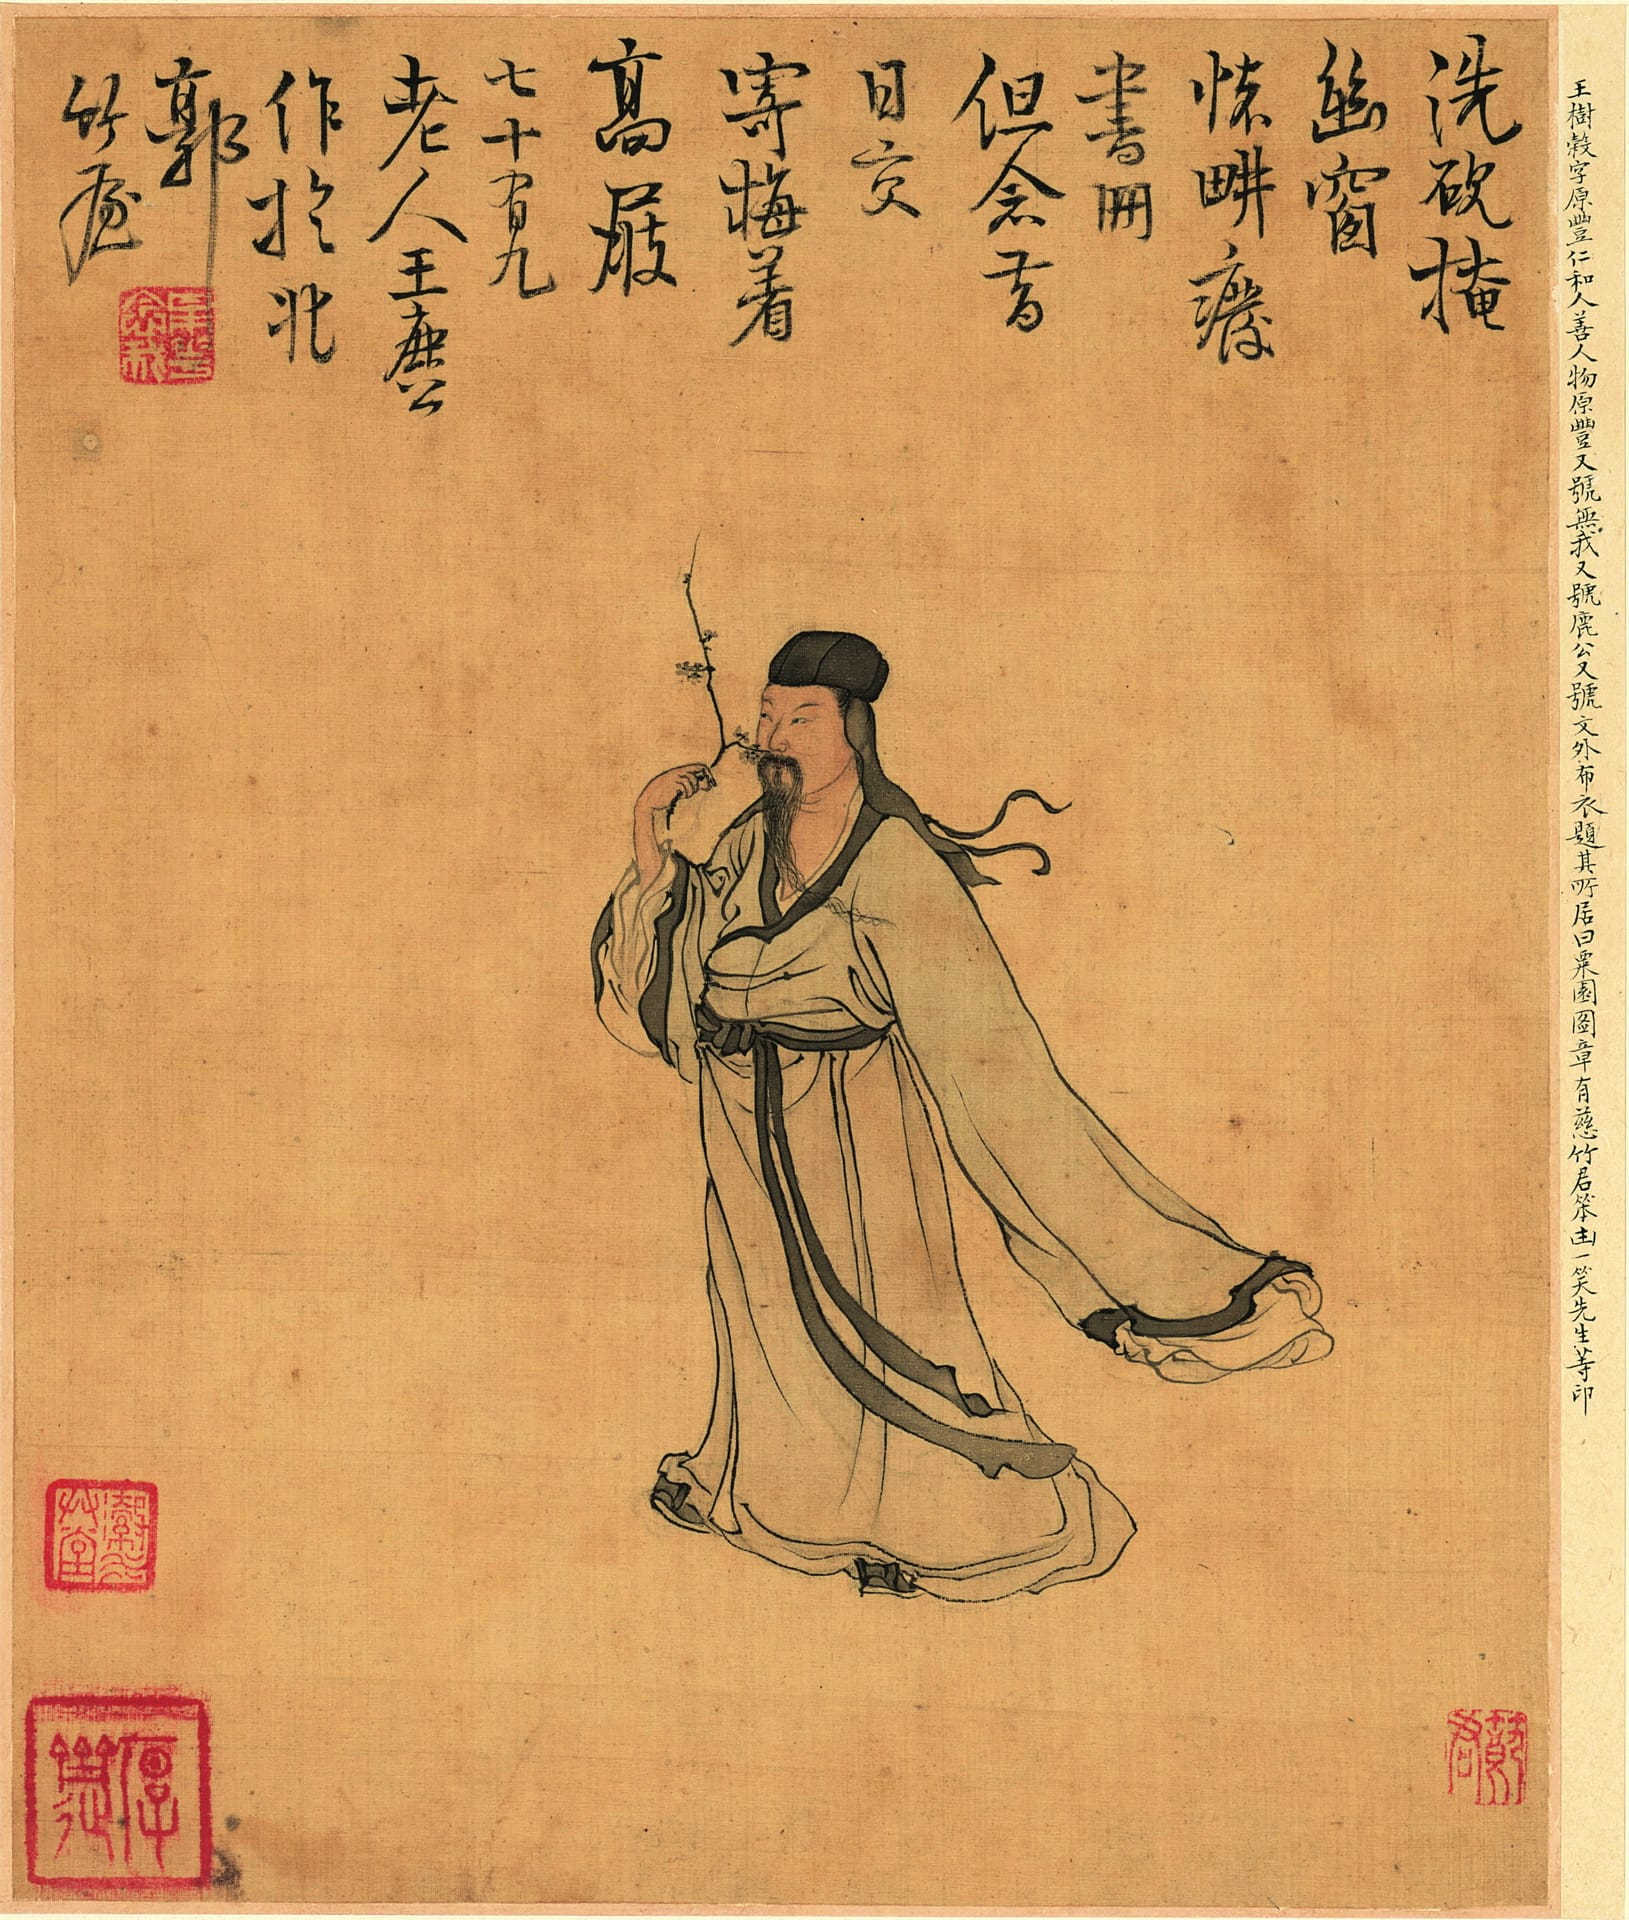 洗硯掩
幽窗
懷畊癈
書冊
但念昔
日交
寄梅着
高嚴
七十有九
老人王鹿公
作於北
郭
竹屋
王樹穀字原豐仁和人善人物原豐又號無我又號鹿公又號文外布衣題其所居曰栗園圖章有慈竹君笨由一笑先生等印
草堂